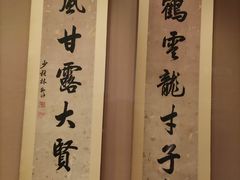 鶴雲龍才子
風甘露大賢
少穆林